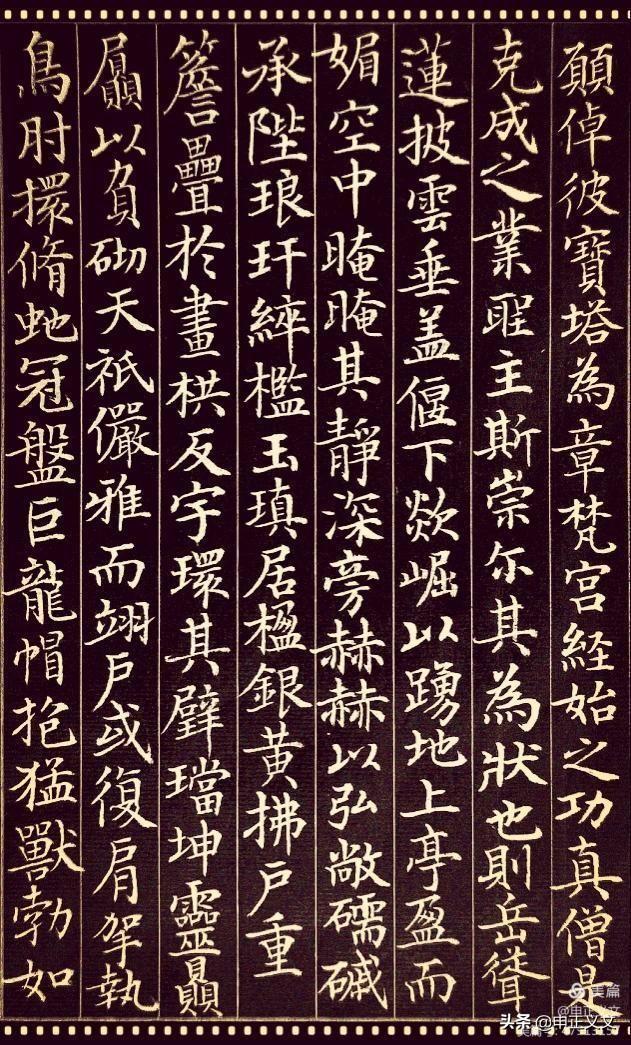 願倬彼寶塔為章梵宮経始之功真僧是
克成之業聖主斯崇尔其為狀也則岳聳
蓮披雲垂盖偃下欻崛以踴地上亭盈而
媚空中晻晻其靜深旁赫赫以弘敞礝磩
承陛琅玕綷檻玉瑱居楹銀黃拂戶重
簷疊於畫栱反宇環其璧璫坤靈贔
屭以負砌天祇儼雅而翊戶或復肩挐執
鳥肘擐脩虵冠盤巨龍帽抱猛獸勃如
美篇
头条 @申正义文